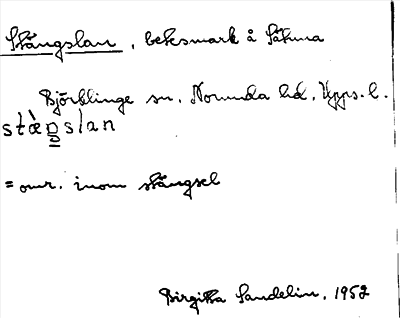 Stängslan, betesmark å Sätuna
Björklinge sn, Norunda hd, Upps. l.
stæ̀ŋslan
= omr. inom stängsel
Birgitta Sandelin, 1952